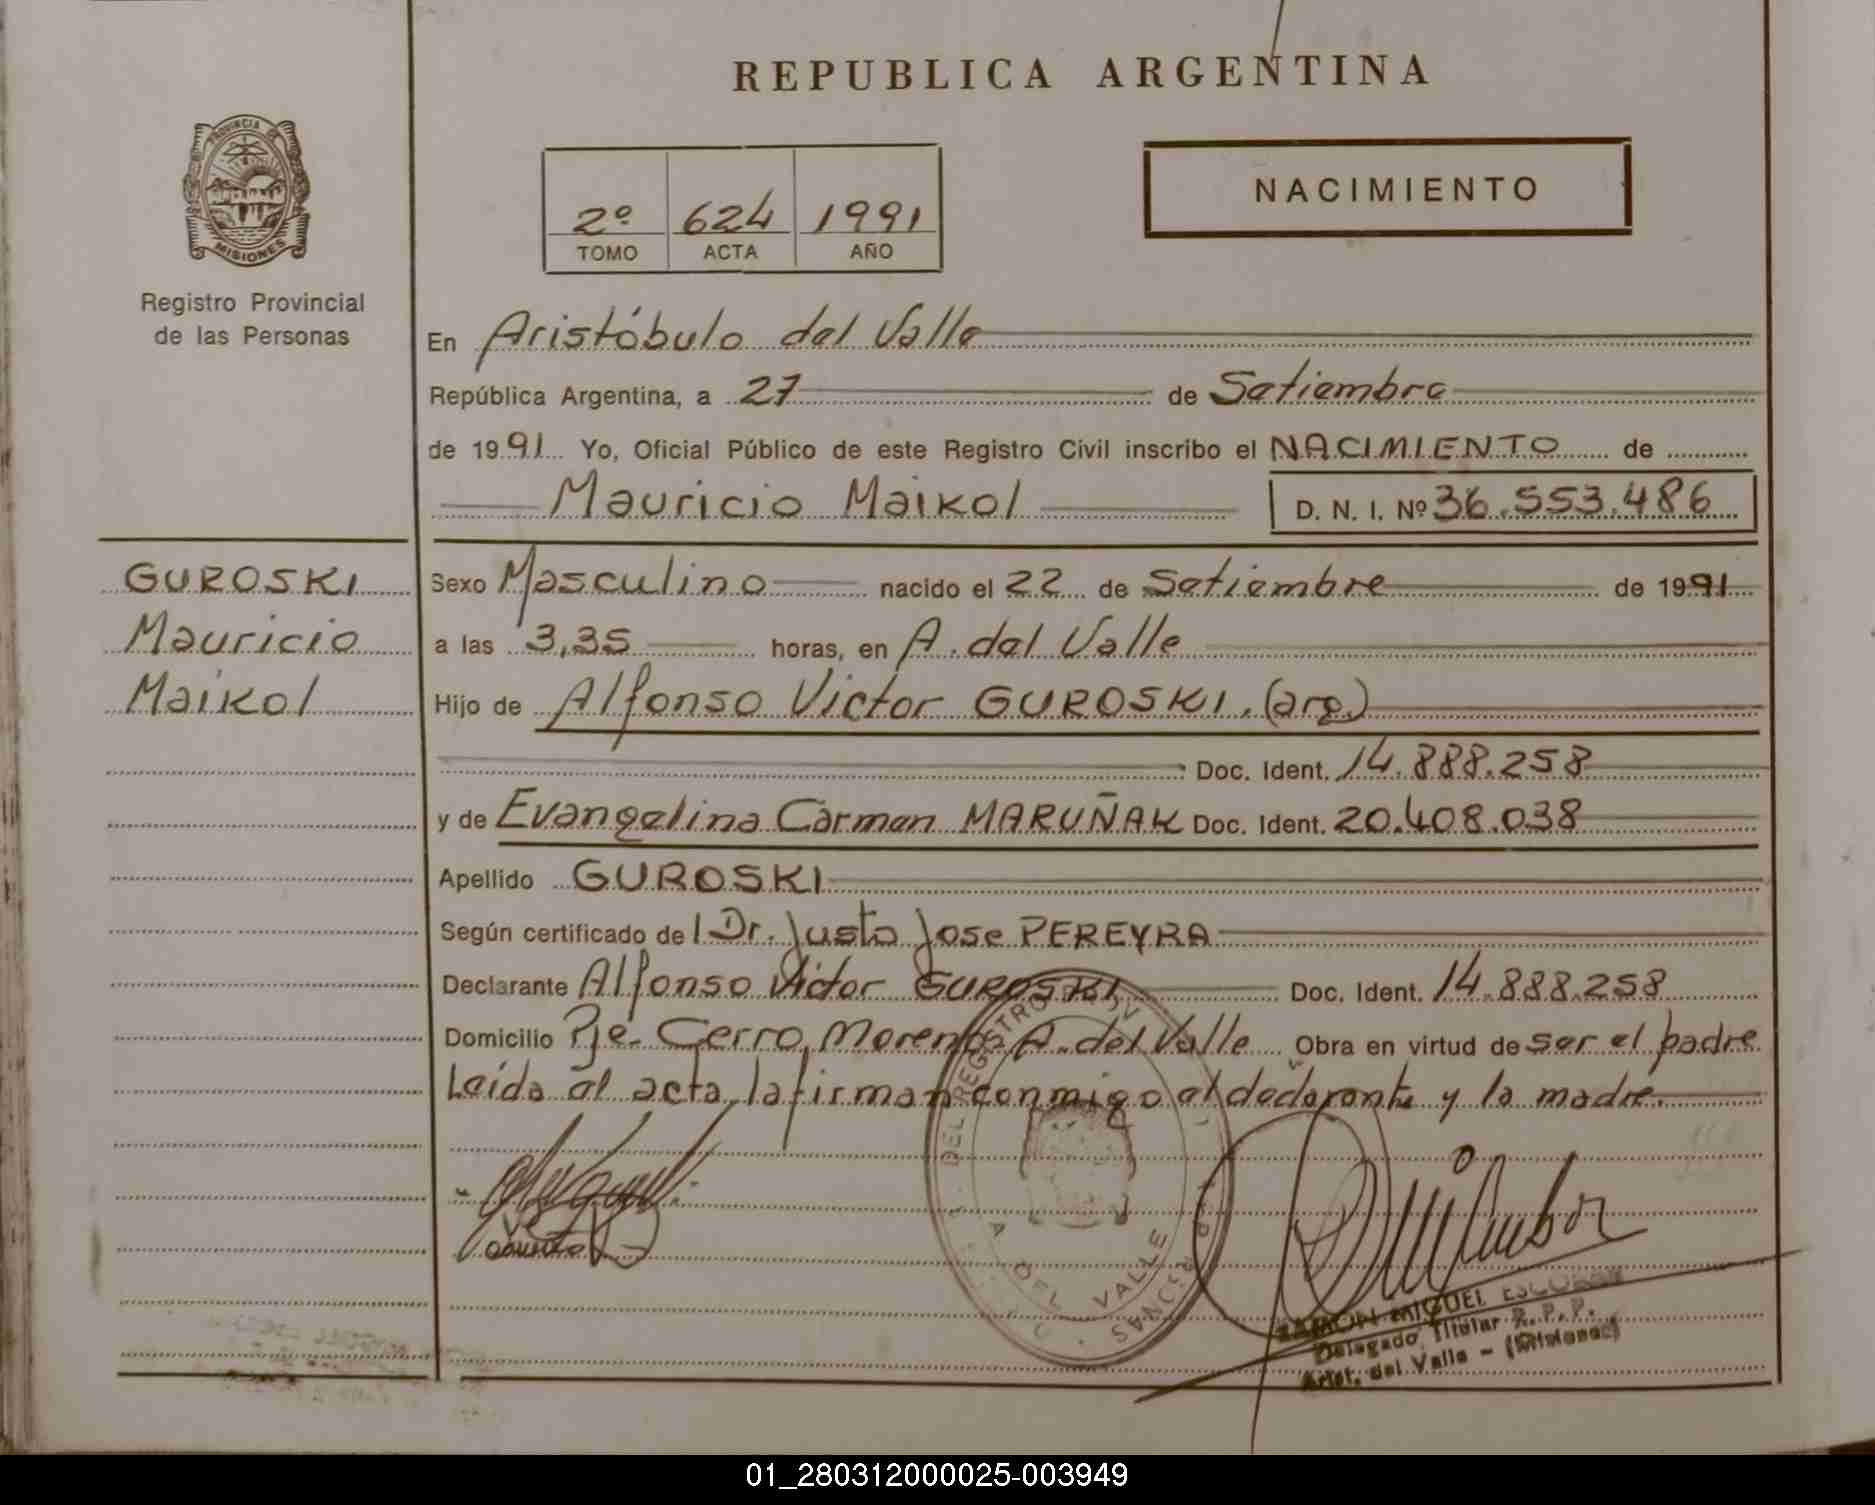 REPUBLICA ARGENTINA
PROVINCIA DE
MISIONES
Registro Provincial
de las Personas
2º 624 1991
TOMO ACTA AÑO
NACIMIENTO
En Aristóbulo del Valle
República Argentina, a 27 de Setiembre
de 1991 Yo, Oficial Público de este Registro Civil inscribo el NACIMIENTO de
Mauricio Maikol D. N. I. Nº 36.553.486
GUROSKI
Mauricio
Maikol
Sexo Masculino nacido el 22 de Setiembre de 1991
a las 3,35 horas, en A. del Valle
Hijo de Alfonso Victor GUROSKI. (arg.)
Doc. Ident. 14.888.258
y de Evangelina Carmen MARUÑAK Doc. Ident. 20.408.038
Apellido GUROSKI
Según certificado del Dr. Justo Jose PEREYRA
Declarante Alfonso Victor GUROSKI Doc. Ident. 14.888.258
Domicilio Pje. Cerro Moreno, A. del Valle Obra en virtud de ser el padre
Leída el acta, la firman conmigo el declarante y la madre.
DEL REGISTRO
A. DEL VALLE
RAMON MIGUEL ESCOBAR
Delegado Titular R. P. P.
Arist. del Valle - (Misiones)
01_280312000025-003949